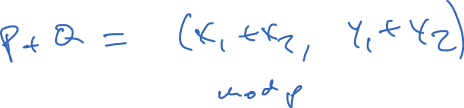 P+Q = (x₁+x₂, y₁+y₂)
mod p